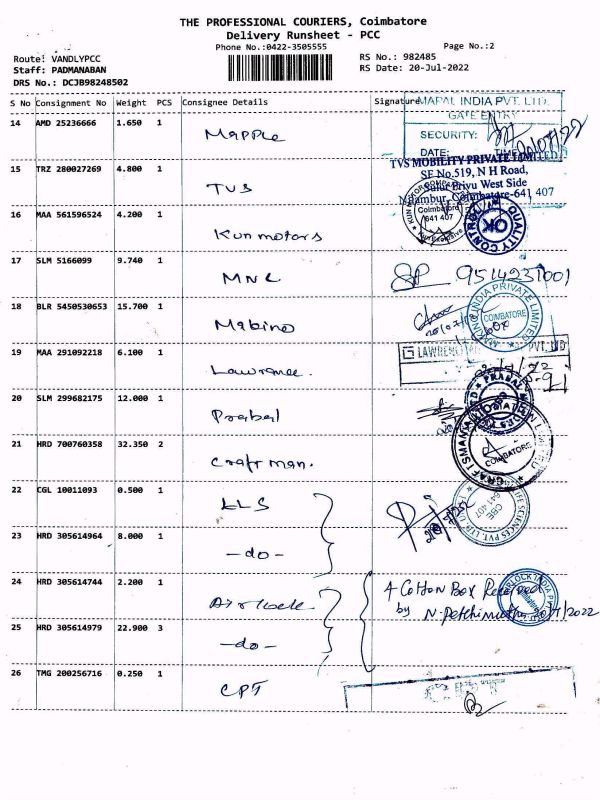 THE PROFESSIONAL COURIERS, Coimbatore
Delivery Runsheet - PCC
Phone No.:0422-3505555
Page No.:2
Route: VANDLYPCC
RS No.: 982485
Staff: PADMANABAN
RS Date: 20-Jul-2022
DRS No.: DCJB98248502
S No Consignment No Weight PCS Consignee Details Signature
MAPAL INDIA PVT. LTD.
GATE ENTRY
14 AMD 25236666 1.650 1
Mapple
SECURITY:
DATE: TIME
15 TRZ 280027269 4.800 1
TVS
TVS MOBILITY PRIVATE LIMITED
SF No.519, N H Road,
Salur Privu West Side
Coimbatore-641 407
16 MAA 561596524 4.200 1
Kun motors
Coimbatore
641 407
QUALITY CONTROL
OK
17 SLM 5166099 9.740 1
MNC
SP 9514231001
18 BLR 5450530653 15.700 1
Mabino
MAKINO INDIA PRIVATE LIMITED
COIMBATORE
19 MAA 291092218 6.100 1
Lawrence.
PVT. LTD
20 SLM 299682175 12.000 1
Prabal
21 HRD 700760358 32.350 2
Craftman.
COIMBATORE
22 CGL 10011093 0.500 1
LLS
LIFE SCIENCES PVT. LTD.
CBE
641 407
23 HRD 305614964 8.000 1
-do-
24 HRD 305614744 2.200 1
Airlock
4 Cotton Box Received
by N. Petchimuthu 20/7/2022
25 HRD 305614979 22.900 3
-do-
26 TMG 200256716 0.250 1
CPT